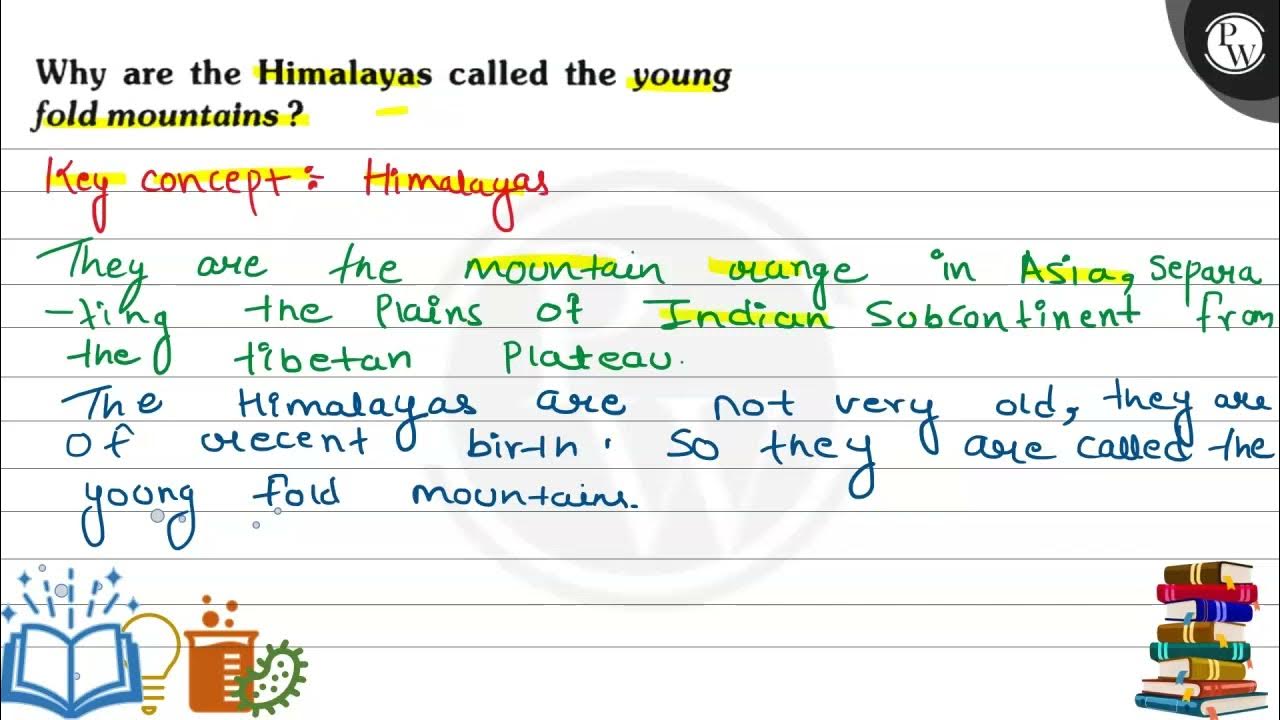 PW
Why are the Himalayas called the young
fold mountains?
Key concept:- Himalayas
They are the mountain range in Asia, Separa
-ting the Plains of Indian Subcontinent from
the tibetan Plateau.
The Himalayas are not very old, they are
of recent birth. So they are called the
young fold mountains.